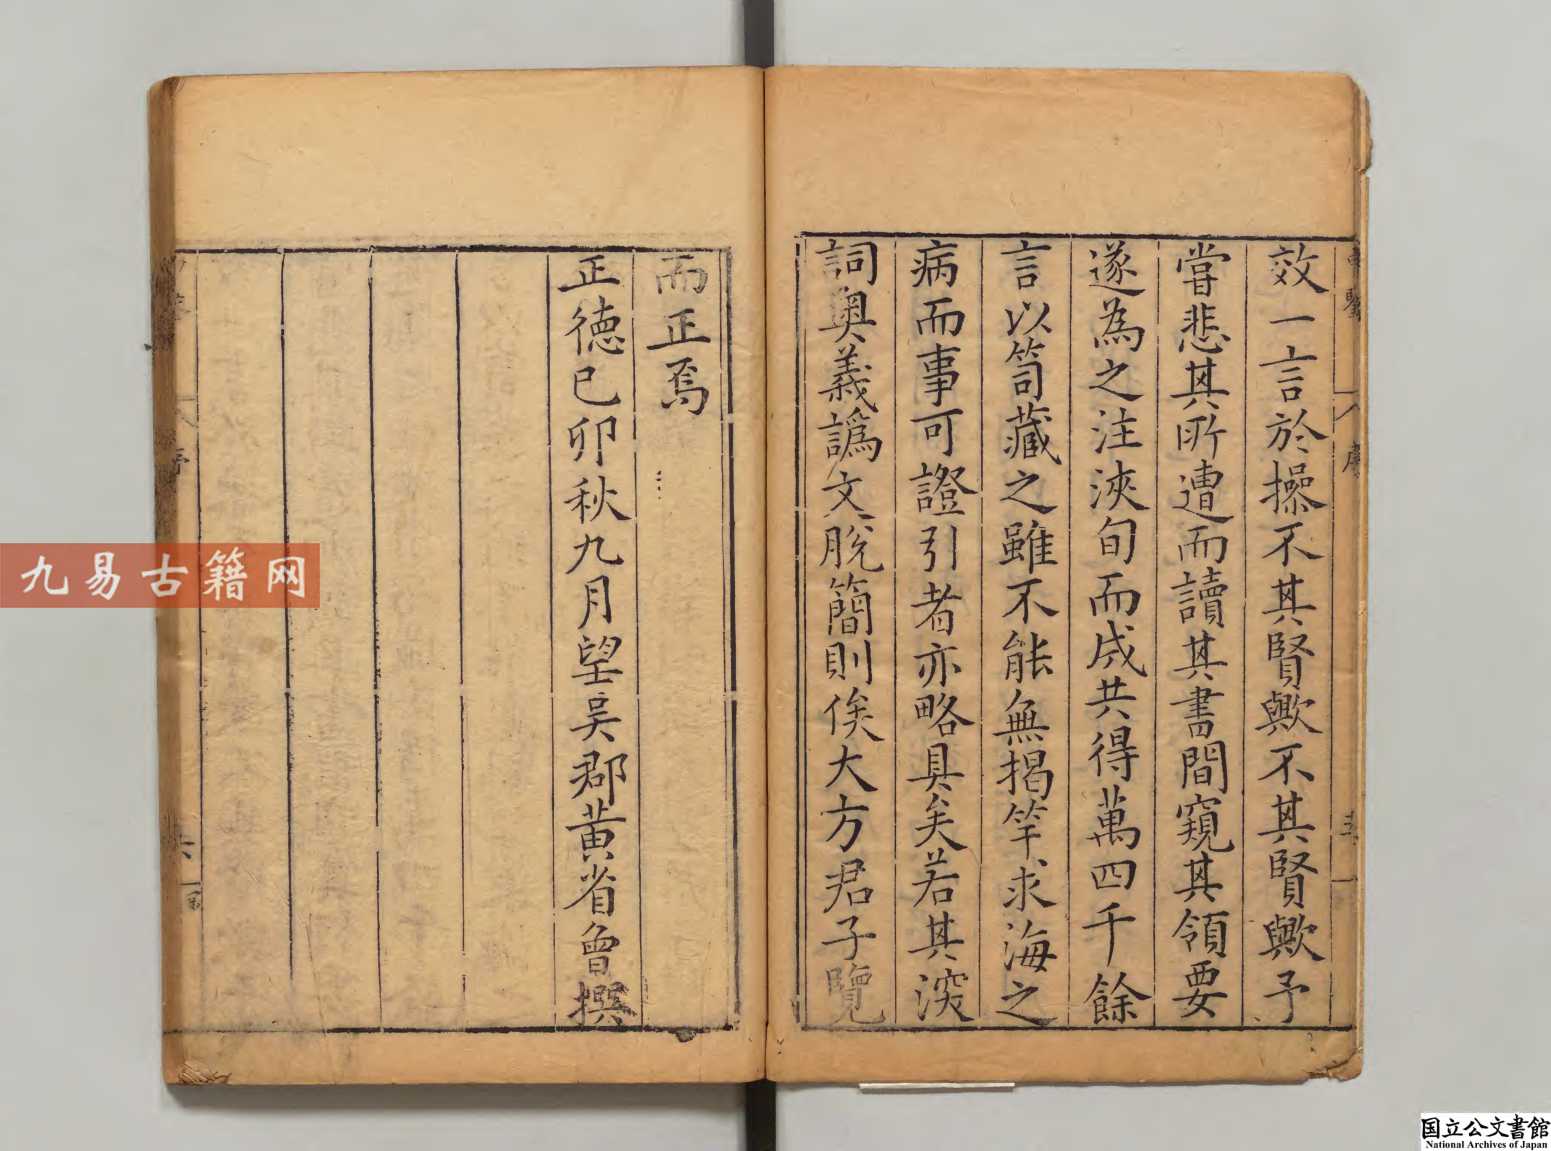 效一言於操不其賢歟不其賢歟予
嘗悲其所遭而讀其書間窺其領要
遂為之注浹旬而成共得萬四千餘
言以笥藏之雖不能無揭竿求海之
病而事可證引者亦略具矣若其深
詞奥義譌文脫簡則俟大方君子覽
而正焉
正德己卯秋九月望吳郡黄省曾撰
九易古籍网
国立公文書館
National Archives of Japan